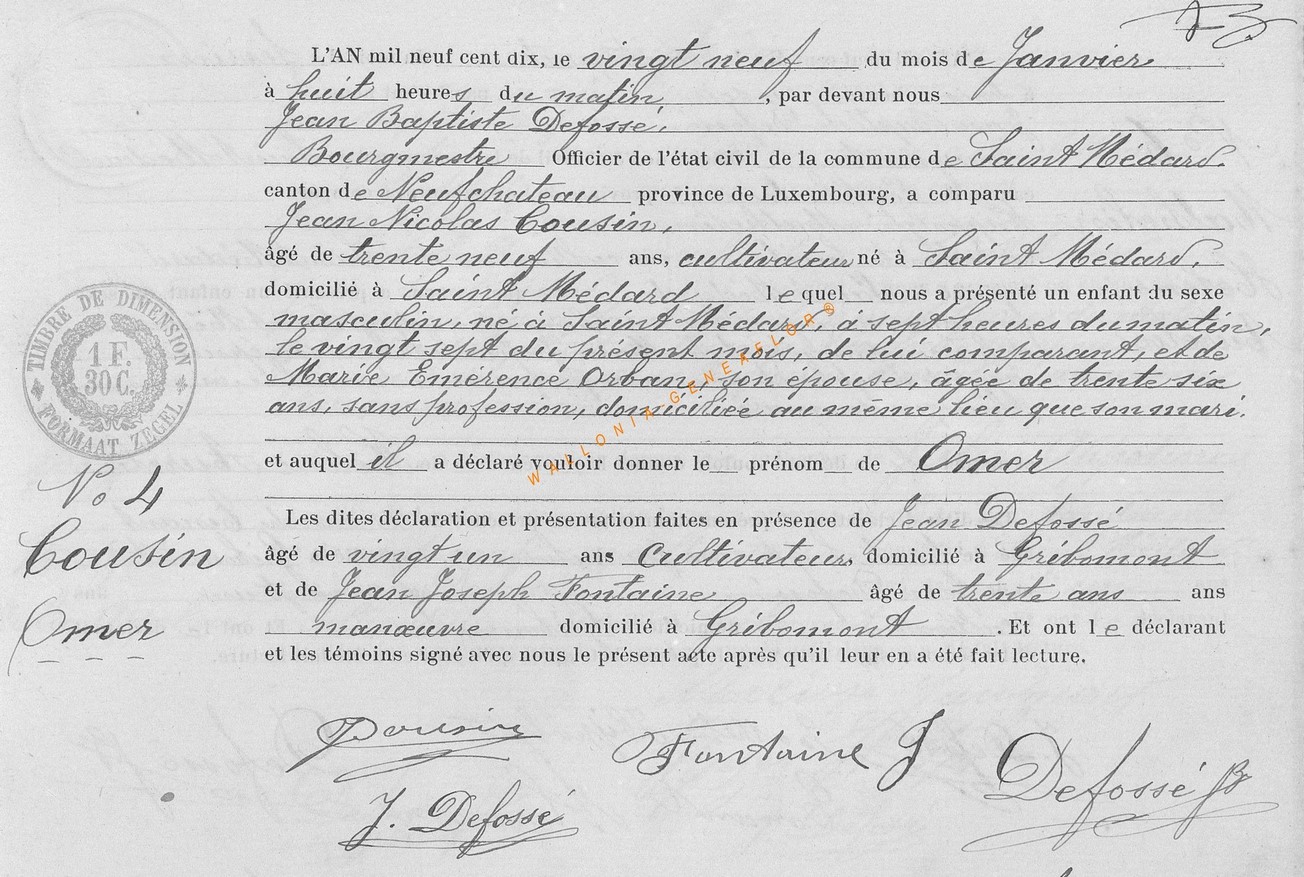 L'AN mil neuf cent dix, le vingt neuf du mois de Janvier
à huit heures du matin, par devant nous
Jean Baptiste Defossé,
Bourgmestre Officier de l'état civil de la commune de Saint Médard.
canton de Neufchateau province de Luxembourg, a comparu
Jean Nicolas Cousin,
âgé de trente neuf ans, cultivateur né à Saint Médard,
domicilié à Saint Médard lequel nous a présenté un enfant du sexe
masculin, né à Saint Médard, à sept heures du matin,
le vingt sept du présent mois, de lui comparant, et de
Marie Emérence Orban, son épouse, âgée de trente six
ans, sans profession, domiciliée au même lieu que son mari.
et auquel il a déclaré vouloir donner le prénom de Omer
Les dites déclaration et présentation faites en présence de Jean Defossé
âgé de vingt un ans cultivateur, domicilié à Gribomont
et de Jean Joseph Fontaine âgé de trente ans ans
manœuvre domicilié à Gribomont. Et ont le déclarant
et les témoins signé avec nous le présent acte après qu'il leur en a été fait lecture.
TIMBRE DE DIMENSION
1 F.
30 C.
FORMAAT ZEGEL
No 4
Cousin
Omer
Cousin
Fontaine J
Defossé JB
J. Defossé
WALLONIA-GENEAFLOR®